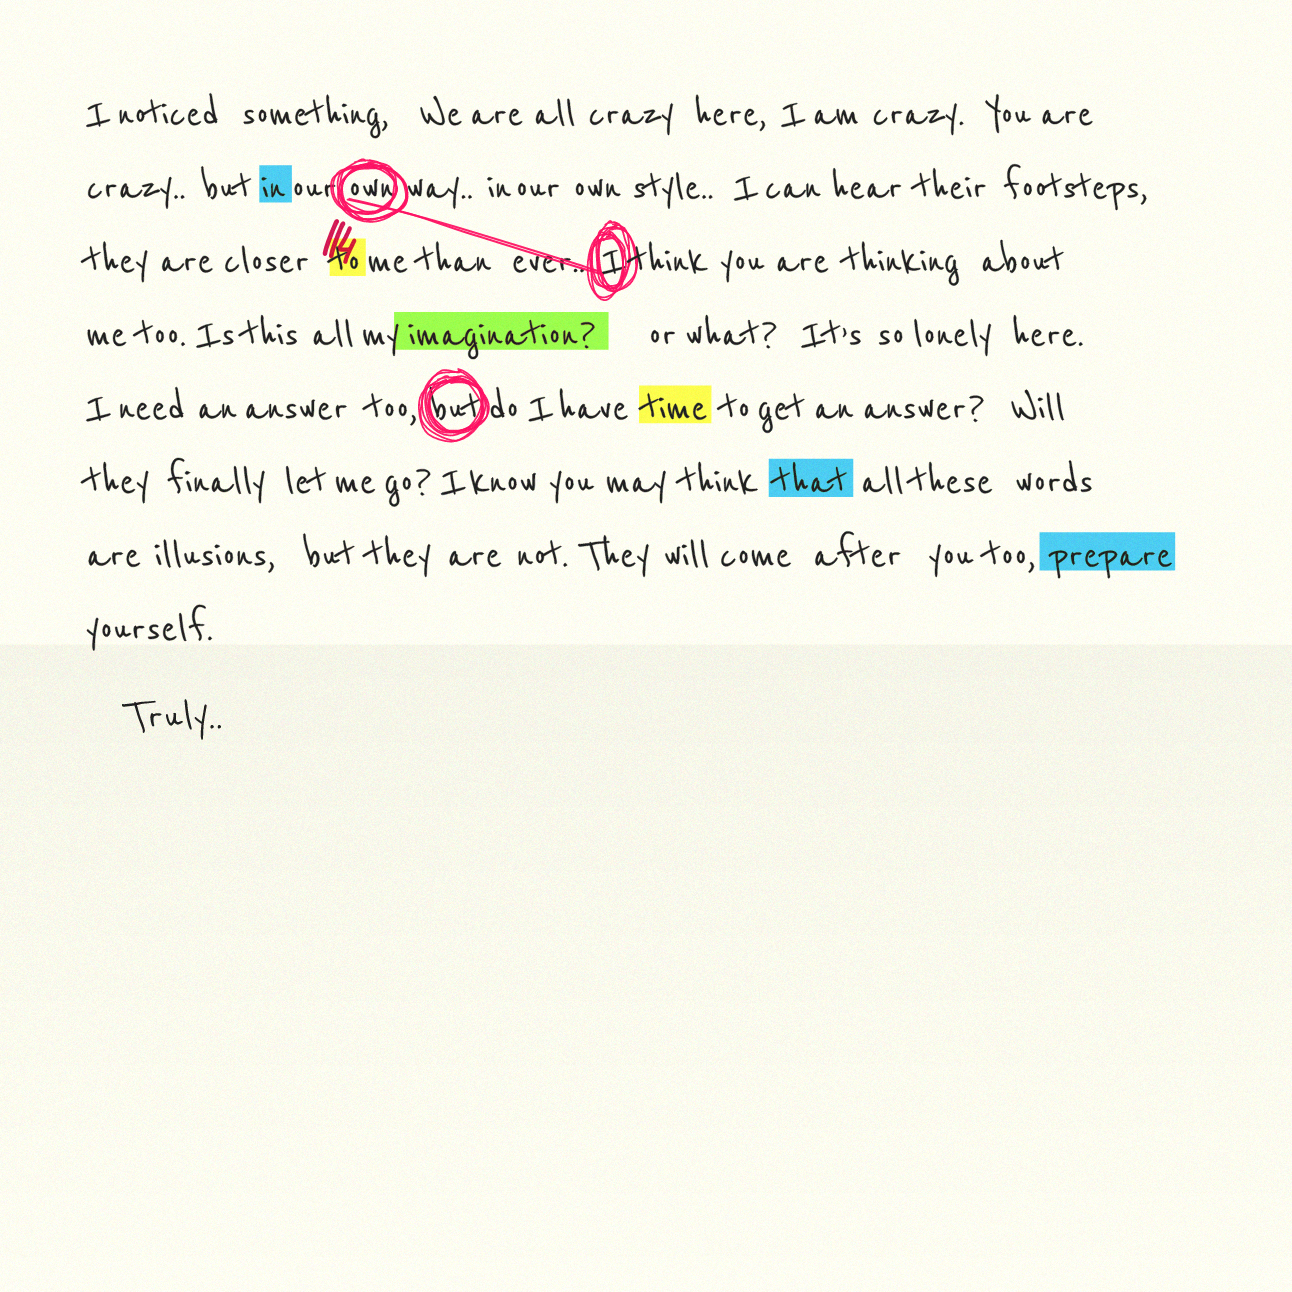 I noticed something, We are all crazy here, I am crazy. You are
crazy.. but in our own way.. in our own style.. I can hear their footsteps,
they are closer to me than ever.. I think you are thinking about
me too. Is this all my imagination? or what? It's so lonely here.
I need an answer too, but do I have time to get an answer? Will
they finally let me go? I know you may think that all these words
are illusions, but they are not. They will come after you too, prepare
yourself.
Truly..